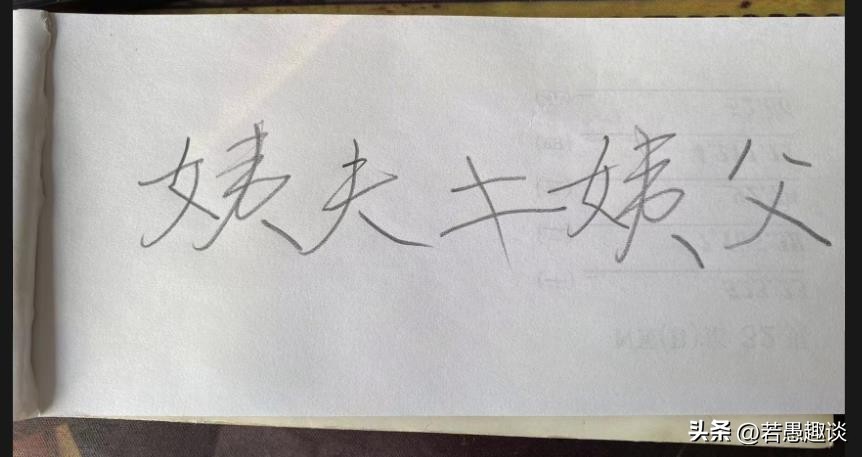 姨夫≠姨父
头条 @若愚趣谈